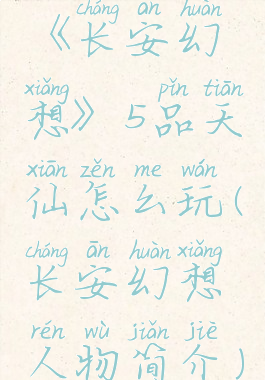 cháng ān huàn
《长安幻
xiǎng pǐn tiān
想》5品天
xiān zěn me wán
仙怎么玩(
cháng ān huàn xiǎng
长安幻想
rén wù jiǎn jiè
人物简介)